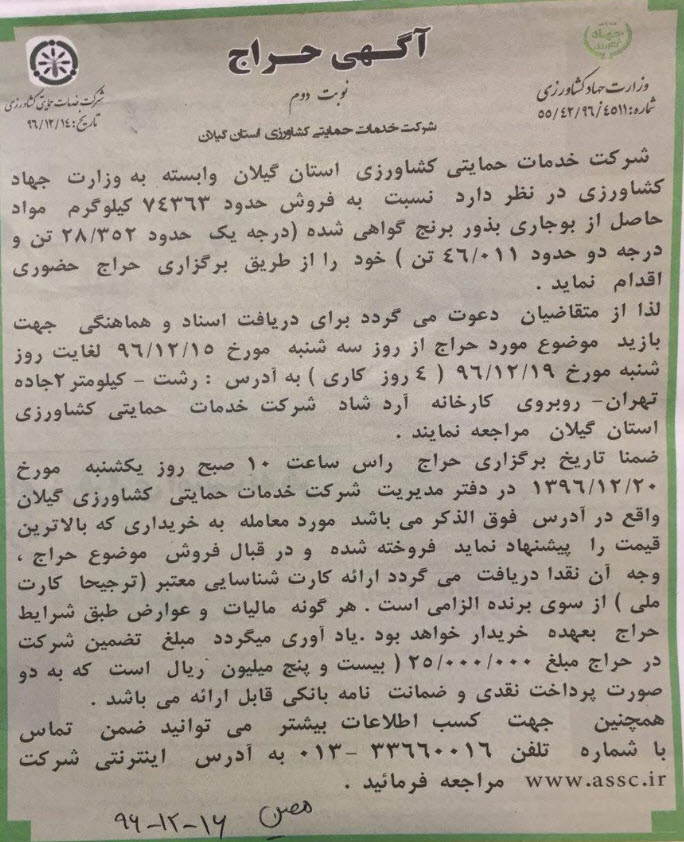 آگهی حراج
نوبت دوم
شرکت خدمات حمایتی کشاورزی استان گیلان
جهاد
وزارت جهاد کشاورزی
شماره: ۵۵/۴۲/۹۶/۴۵۱۱
شرکت خدمات حمایتی کشاورزی
تاریخ: ۹۶/۱۲/۱۴
شرکت خدمات حمایتی کشاورزی استان گیلان وابسته به وزارت جهاد
کشاورزی در نظر دارد نسبت به فروش حدود ۷۴۳۶۳ کیلوگرم مواد
حاصل از بوجاری بذور برنج گواهی شده (درجه یک حدود ۲۸/۳۵۲ تن و
درجه دو حدود ۴۶/۰۱۱ تن ) خود را از طریق برگزاری حراج حضوری
اقدام نماید .
لذا از متقاضیان دعوت می گردد برای دریافت اسناد و هماهنگی جهت
بازید موضوع مورد حراج از روز سه شنبه مورخ ۹۶/۱۲/۱۵ لغایت روز
شنبه مورخ ۹۶/۱۲/۱۹ ( ۴ روز کاری ) به آدرس : رشت - کیلومتر ۲جاده
تهران- روبروی کارخانه آرد شاد شرکت خدمات حمایتی کشاورزی
استان گیلان مراجعه نمایند .
ضمنا تاریخ برگزاری حراج راس ساعت ۱۰ صبح روز یکشنبه مورخ
۱۳۹۶/۱۲/۲۰ در دفتر مدیریت شرکت خدمات حمایتی کشاورزی گیلان
واقع در آدرس فوق الذکر می باشد مورد معامله به خریداری که بالاترین
قیمت را پیشنهاد نماید فروخته شده و در قبال فروش موضوع حراج ،
وجه آن نقدا دریافت می گردد ارائه کارت شناسایی معتبر (ترجیحا کارت
ملی ) از سوی برنده الزامی است . هر گونه مالیات و عوارض طبق شرایط
حراج بعهده خریدار خواهد بود .یاد آوری میگردد مبلغ تضمین شرکت
در حراج مبلغ ۲۵/۰۰۰/۰۰۰ ( بیست و پنج میلیون ریال است که به دو
صورت پرداخت نقدی و ضمانت نامه بانکی قابل ارائه می باشد .
همچنین جهت کسب اطلاعات بیشتر می توانید ضمن تماس
با شماره تلفن ۳۳۶۶۰۰۱۶ -۰۱۳ به آدرس اینترنتی شرکت
www.assc.ir مراجعه فرمائید .
۹۶-۱۲-۱۶